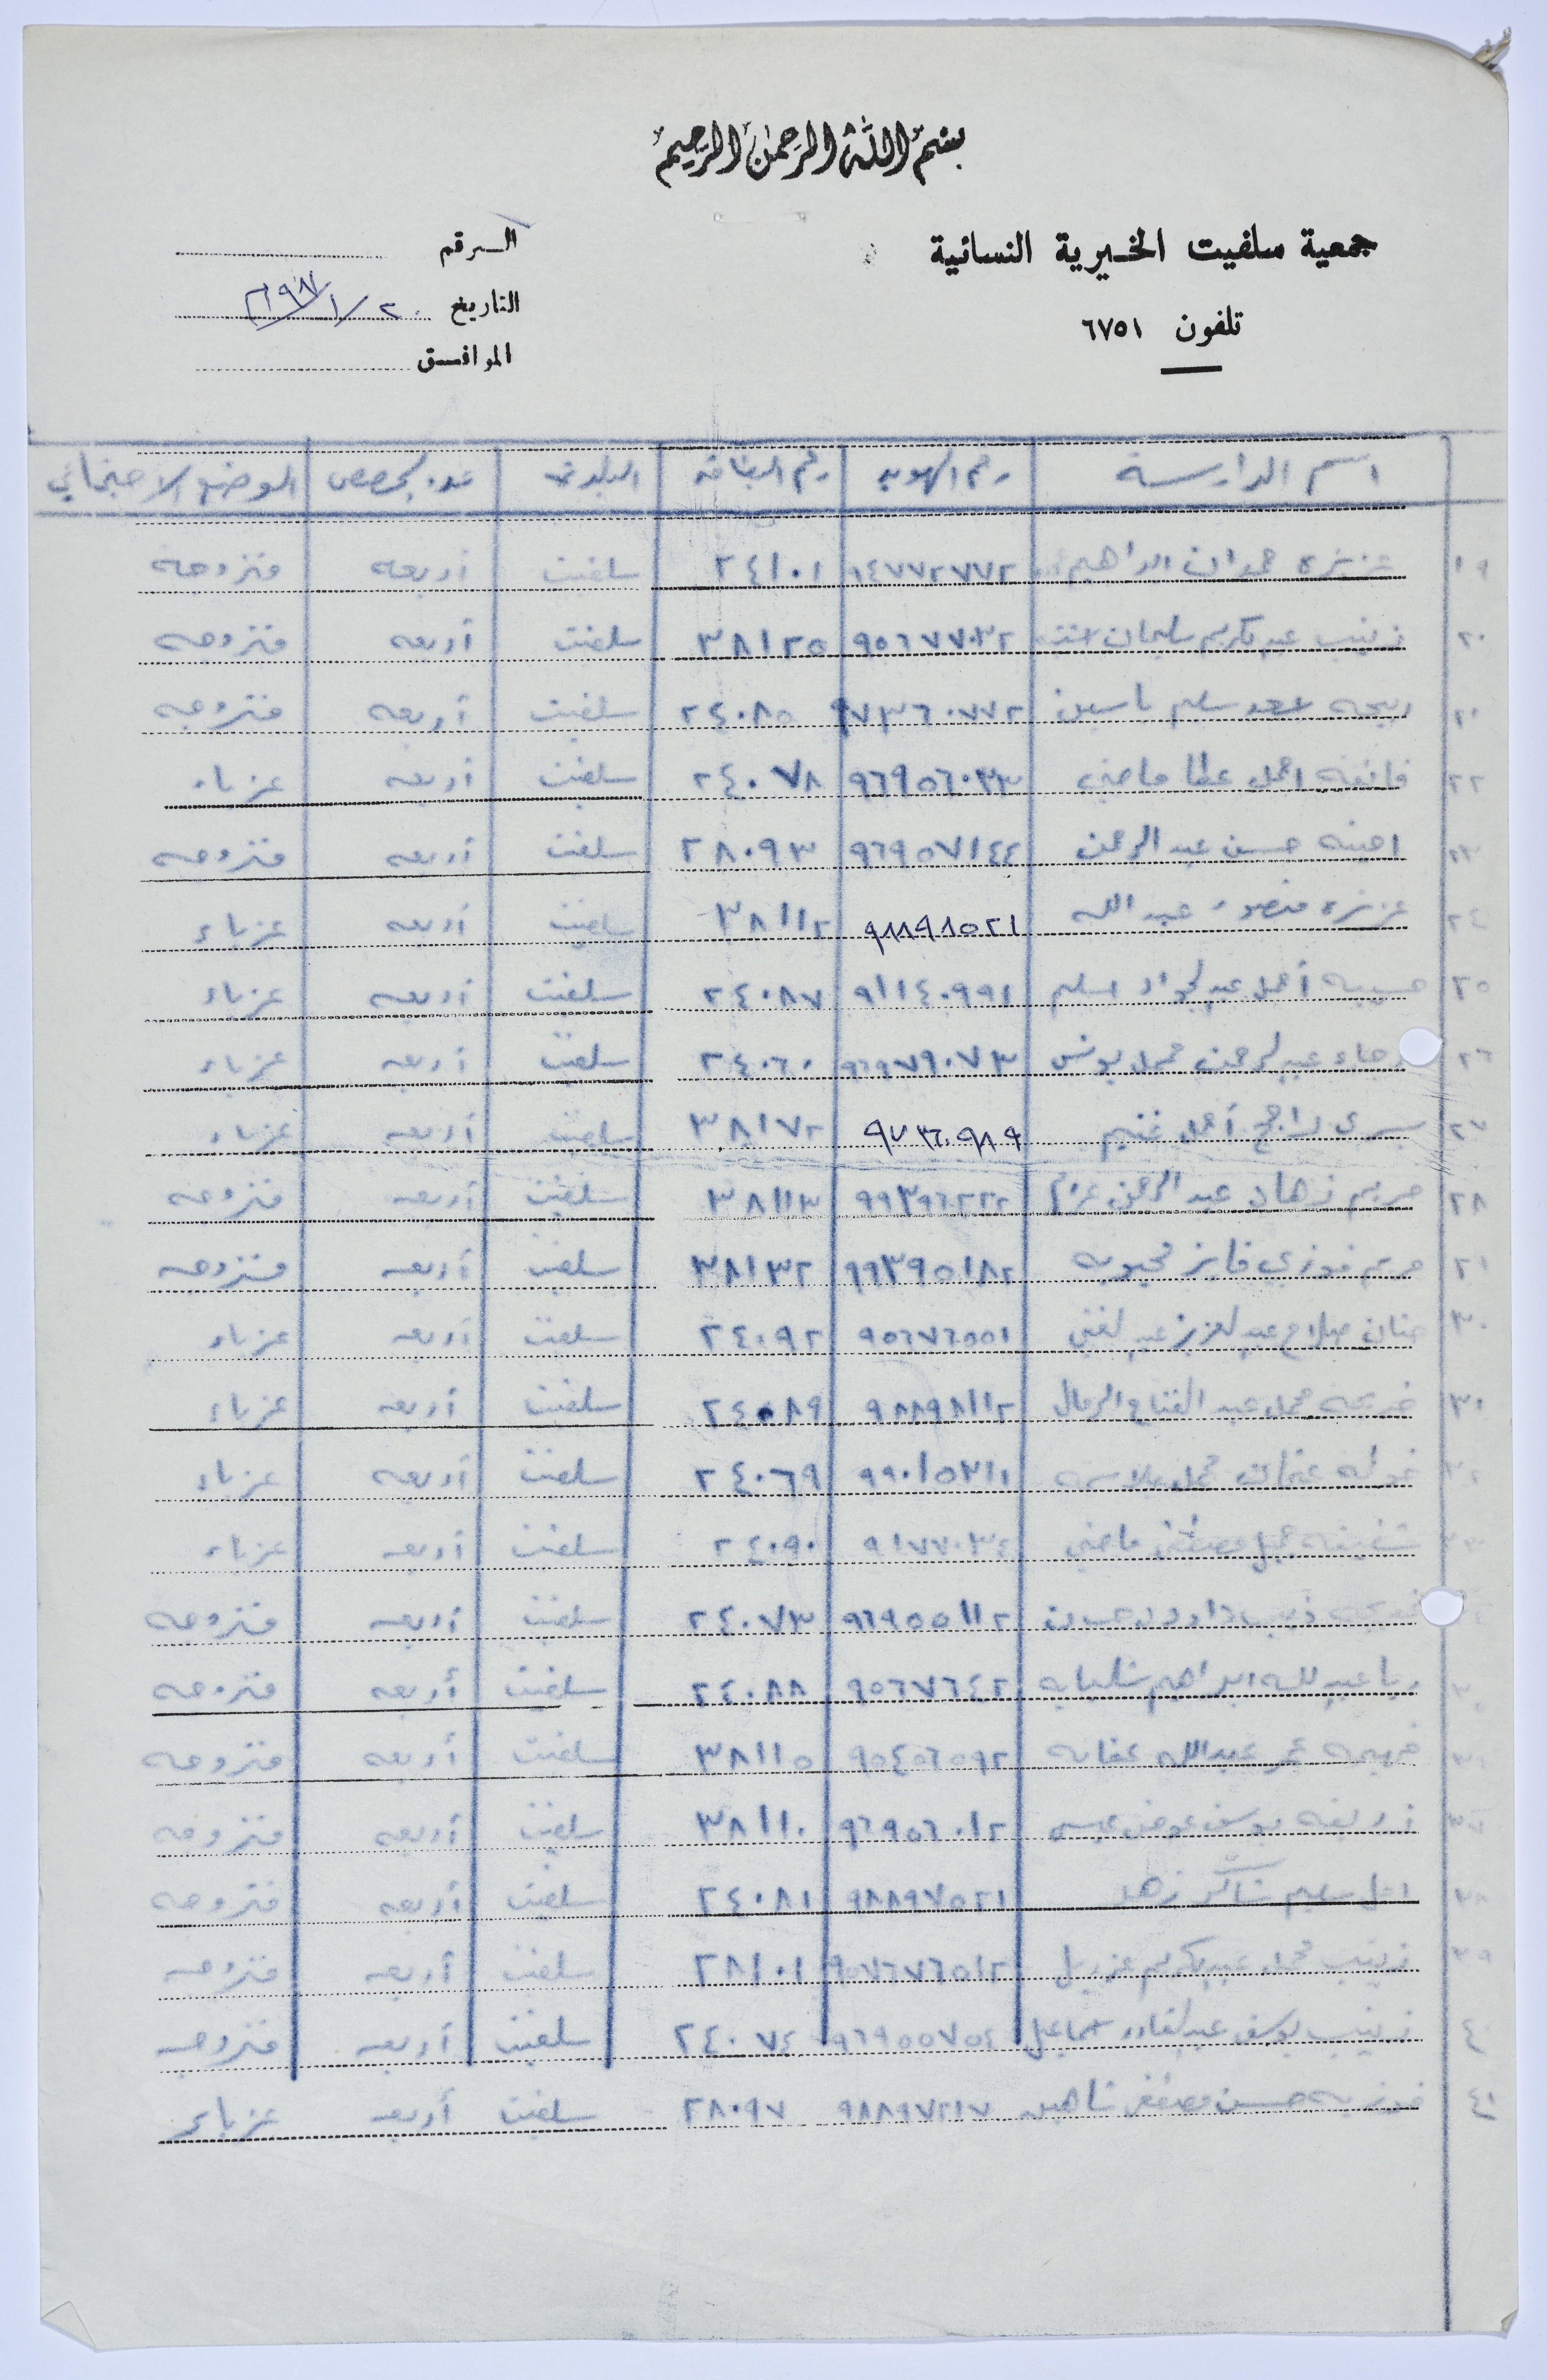 بسم الله الرحمن الرحيم
جمعية سلفيت الخيرية النسائية
تلفون ٦٧٥١
الرقم
التاريخ ٢٠/١/١٩٨٧
الموافق
اسم الدارسة رقم الهوية رقم البطاقة البلدة عدد الحصص الوضع الاجتماعي
١٩ عزيزه حمدان ابراهيم ٩٤٧٧٢٧٧٢ ٢٤١٠١ سلفيت أربعه متزوجه
٢٠ زينب عبدالكريم سليمان ٩٥٦٧٧٠٣٢ ٣٨١٢٥ سلفيت أربعه متزوجه
٢١ ربيحه سليم ياسين ٩٧٣٦٠٧٧٢ ٢٤٠٨٥ سلفيت أربعه متزوجه
٢٢ فائقه احمد عطا ماضي ٩٦٩٥٦٠٣٣ ٢٤٠٧٨ سلفيت أربعه عزباء
٢٣ امينه حسين عبد الرحمن ٩٦٩٥٧١٤٤ ٢٨٠٩٣ سلفيت أربعه متزوجه
٢٤ عزيزه منصور عبد الله ٩٨٨٩٨٥٢١ ٣٨١١٢ سلفيت أربعه عزباء
٢٥ حسيبه أحمد عبدالجواد اسليم ٩١١٤٠٩٩١ ٢٤٠٨٧ سلفيت أربعه عزباء
٢٦ رجاء عبدالرحمن محمد يونس ٩٦٩٧٩٠٧٣ ٢٤٠٦٠ سلفيت أربعه عزباء
٢٧ يسرى راجح أحمد غنيم ٩٧٣٦٠٩٨٩ ٣٨١٧٢ سلفيت أربعه عزباء
٢٨ مريم عبد الرحمن عزام ٩٩٣٩٦٢٢٢ ٣٨١١٣ سلفيت أربعه متزوجه
٢٩ مريم فوزي فايز محبوبه ٩٩٣٩٥١٨٢ ٣٨١٣٢ سلفيت أربعه متزوجه
٣٠ حنان صلاح عبدالعزيز عبدالغني ٩٥٦٧٦٥٥١ ٢٤٠٩٢ سلفيت أربعه عزباء
٣١ خديجه محمد عبد الفتاح الرمال ٩٨٨٩٨١١٢ ٢٤٠٨٩ سلفيت أربعه عزباء
٣٢ خوله عثمان محمد ٩٩٠١٥٣١١ ٢٤٠٦٩ سلفيت أربعه عزباء
٣٣ شفيقه جميل مصطفى ماضي ٩١٧٧٠٣٤ ٢٤٠٩٠ سلفيت أربعه عزباء
ذيب داوود ٩٦٩٥٥١١٢ ٢٤٠٧٣ سلفيت أربعه متزوجه
٣٥ ربا عبدالله ابراهيم شلبايه ٩٥٦٧٦٤٢ ٢٤٠٨٨ سلفيت أربعه متزوجه
٣٦ عمر عبدالله عفانه ٩٥٤٥٦٥٩٢ ٣٨١١٥ سلفيت أربعه متزوجه
٣٧ يوسف عوض عيسى ٩٦٩٥٦٠١٢ ٣٨١١٠ سلفيت أربعه متزوجه
٣٨ امل سليم شاكر زهد ٩٨٨٩٧٥٢١ ٢٤٠٨١ سلفيت أربعه متزوجه
٣٩ زينب محمد عبدالكريم عزريل ٩٥٧٦٧٦٥١٢ ٢٨١٠١ سلفيت أربعه متزوجه
٤٠ زينب يوسف عبدالقادر اسماعيل ٩٦٩٥٥٧٥٤ ٢٤٠٧٤ سلفيت أربعه متزوجه
٤١ فوزيه حسين مصطفى شاهين ٩٨٨٩٧٢١٧ ٢٨٠٩٧ سلفيت أربعه عزباء